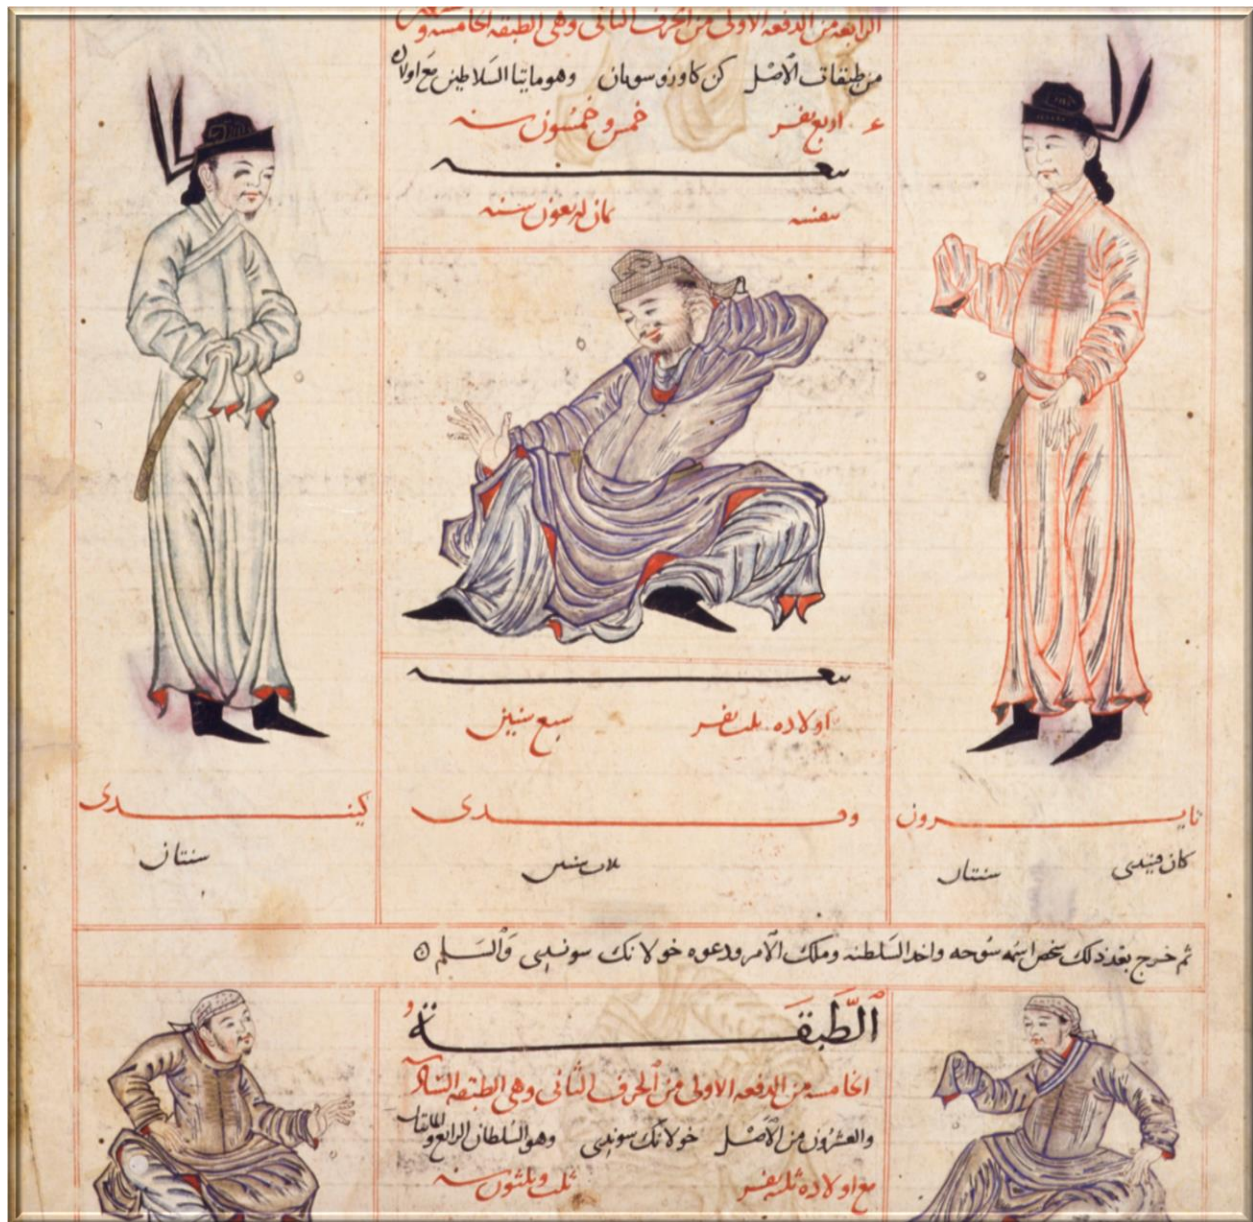 الرابعة من الدفعه الاولى من الحرف الثانى وهى الطبقه الخامسه و
من طبقات الاصل كن كاوزو سوىان وهو مايتا السلاطين مع اولاده
اربع نفر خمس وخمسون سنه
نفسه ثمان اربعون سنه
اولاده ثلث نفر سبع سنين
نايرون
كان فيندى سنتان
ودى
ثلاث سنين
كيندى
سنتان
ثم خرج بعد ذلك شخص اسمه سوحه واخد السلطنه وملك الامر ودعوه خولانك سوندى والسلم
الطبقة
الخامسه من الدفعه الاولى من الحرف الثانى وهى الطبقه السادسه
والعشرون من الاصل خولانك سوندى وهو السلطان الرابع والمائتان
مع اولاده ثلثه نفر ثلث وثلثون سنه